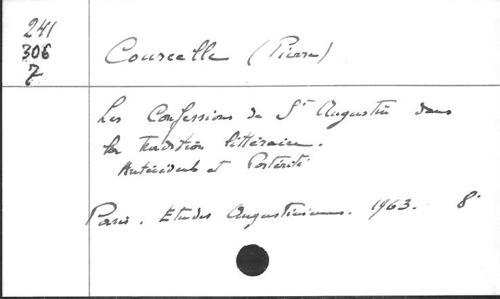 241
306
7
Courcelle (Pierre)
Les Confessions de St Augustin dans
la tradition littéraire.
Antécédents et Postérité
Paris. Etudes Augustiniennes. 1963. 8°